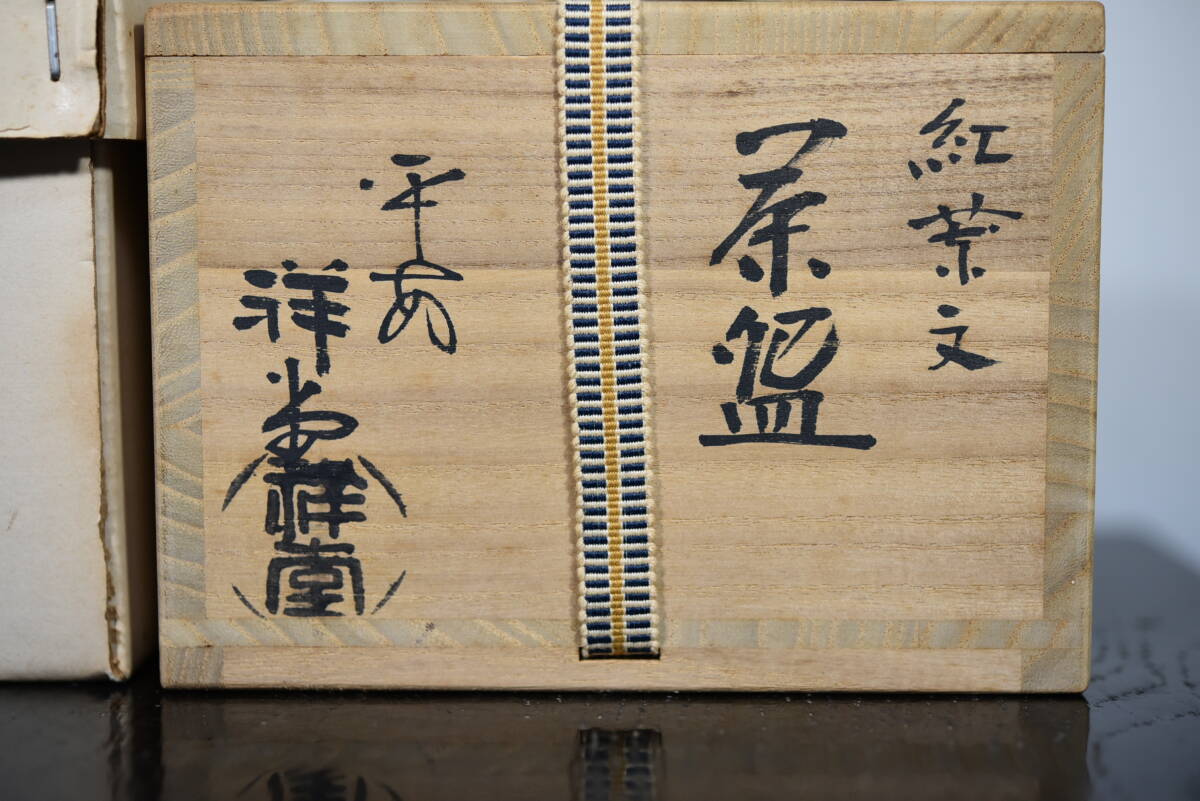 紅葉文
茶盌
平安
祥堂
祥堂